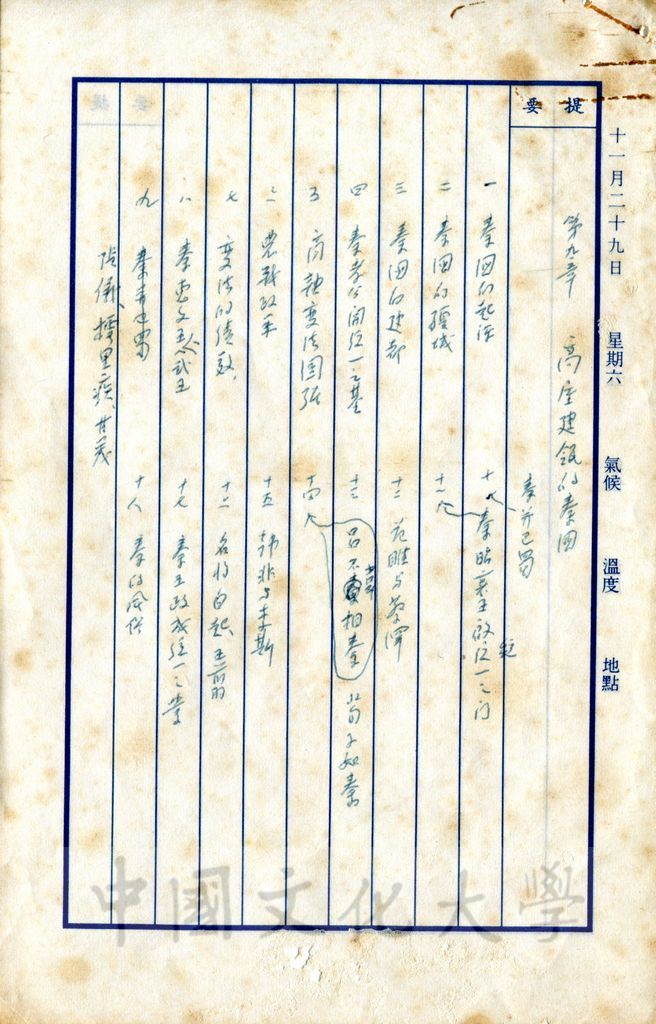 十一月二十九日 星期六 氣候 溫度 地點
提要
第九章 高屋建瓴的秦國
秦并巴蜀
一 秦國的起源
十 秦昭襄王啟統一之門
二 秦國的疆域
十一
三 秦國的建都
十二 范睢與蔡澤
四 秦孝公開統一之基
十三 呂不韋相秦 荀子如秦
五 商鞅變法圖強
十四
六 農戰政策
十五 韓非與李斯
七 變法的績效
十六 名將白起王翦
八 秦惠文王 武王
十七 秦王政成統一之業
九
十八 秦的風俗
張儀、樗里疾、甘茂
中國文化大學